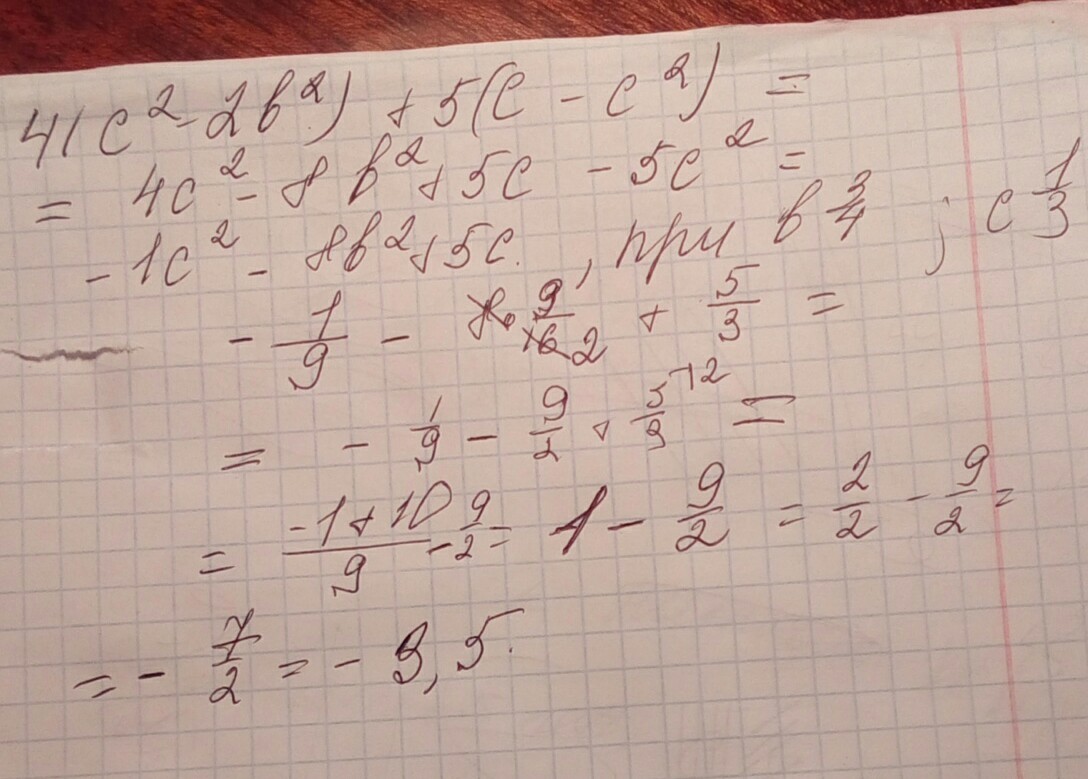 4(c² - 2b²) + 5(c - c²) =
= 4c² - 8b² + 5c - 5c² =
- 1c² - 8b² + 5c. , при b 3/4 ; c 1/3
- 1/9 - 8 · 9/16 2 + 5/3 =
= - 1/9 - 9/2 + 5/3 =
= (-1+10)/9 - 9/2 = 1 - 9/2 = 2/2 - 9/2 =
= - 7/2 = - 3,5.